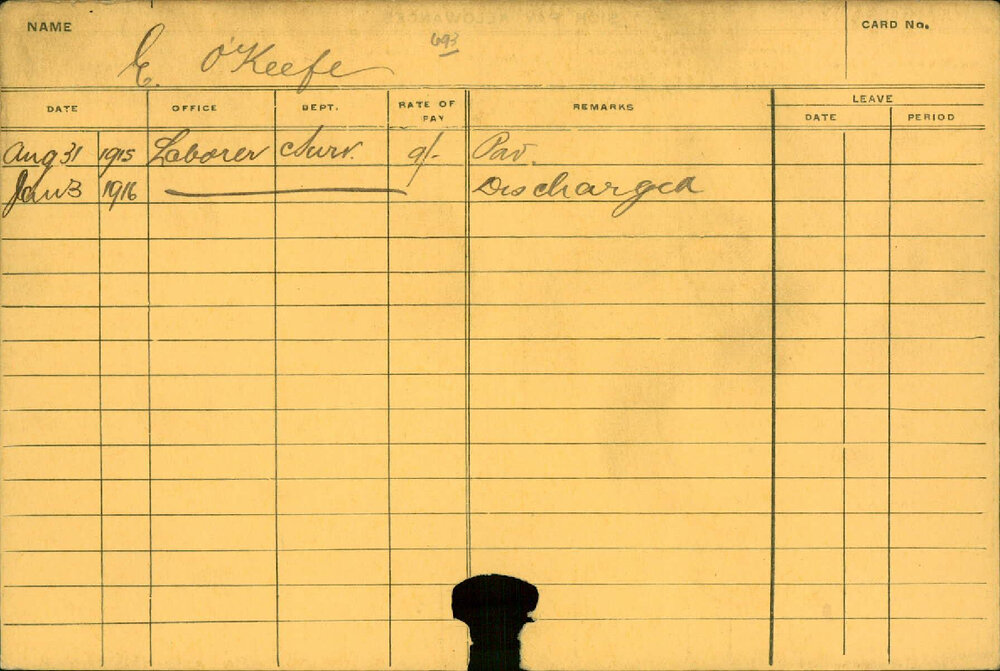 NAME
E. O'Keefe
693
CARD No.
DATE OFFICE DEPT. RATE OF PAY REMARKS LEAVE
DATE PERIOD
Aug 31 1915 Laborer Surv. 9/- Pav.
Jan 3 1916 Discharged